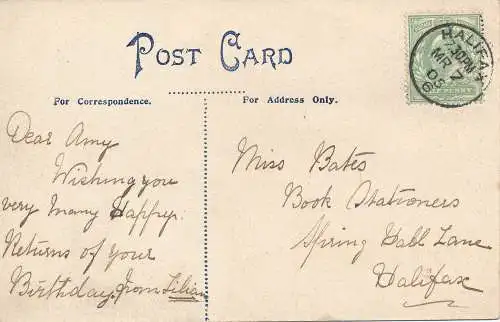 POST CARD
For Correspondence.
For Address Only.
HALIFAX
7.30PM
MR 7
06
Dear Amy
Wishing you
very many Happy
Returns of your
Birthday, from Lilian
Miss Bates
Book Stationers
Spring Hall Lane
Halifax